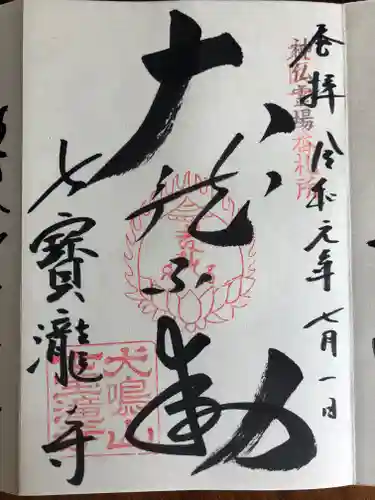 奉拝 令和元年七月一日
神仏霊場 捺札所
大龍不動
七寶瀧寺
犬鳴山
七宝瀧寺